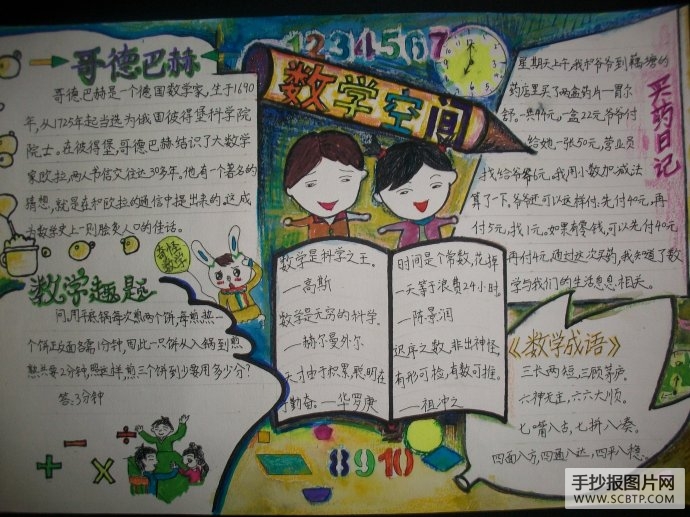 哥德巴赫
哥德巴赫是一个德国数学家,生于1690
年,从1725年起当选为俄国彼得堡科学院
院士。在彼得堡,哥德巴赫结识了大数学
家欧拉,两人书信交往达30多年。他有一个著名的
猜想,就是在和欧拉的通信中提出来的。这成
为数学史上一则脍炙人口的佳话。
1234567
数学空间
买药日记
星期天上午,我和爷爷到
药店里买了两盒药片一胃
舒。一共44元,一盒22元爷爷付
给她一张50元,营业员
找给爷爷6元。我用小数加减法
算了一下。爷爷还可以这样付,先付40元,再
付5元,找1元。如果有零钱,可以先付40元
再付4元。通过这次买药,我知道了数
学与我们的生活息息相关。
奇怪
数学
数学趣题
问:用平底锅每次煎两个饼,每煎熟一
个饼正反面各需1分钟,因此一只饼从入锅到煎
熟共要2分钟,照这样,煎三个饼到少要用多少分?
答:3分钟
+ - × ÷
数学是科学之王。
—高斯
数学是无穷的科学。
—赫尔曼外尔
天才由于积累,聪明在
于勤奋。—华罗庚
时间是个常数,花掉
一天等于浪费24小时。
—陈景润
迟序之数,非出神怪,
有形可检,有数可推。
—祖冲之
8910
《数学成语》
三长两短,三顾茅庐。
六神无主,六六大顺。
七嘴八舌,七拼八凑。
四面八方,四通八达,四平八稳。
手抄报图片网
WWW.SCBTP.COM